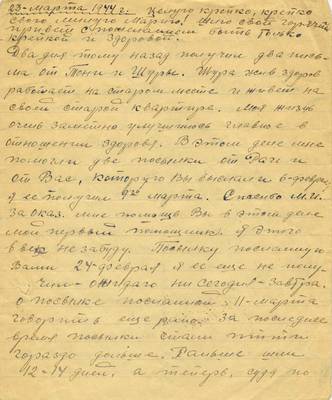 23-марта 1944 г. Целую крепко, крепко
свою милую Марию! Шлю свой горячий
привет с пожеланием быть только
крепкой и здоровой.
Два дня тому назад получил два пись-
ма от Тони и Шуры. Шура жив здоров
работает на старом месте и живет на
своей старой квартире. Моя жизнь
очень заметно улучшилась главное в
отношении здоровья. В этом деле мне
помогли две посылки от Раи и
от Вас, которую Вы выслали 6-февр.
я ее получил 9го марта. Спасибо М.И.
за оказ. мне помощь Вы в этом деле
мой первый помощник. Я этого
в век не забуду. Посылку посланную
Вами 24-февраля я ее еще не полу-
чил - ожидаю ни сегодня-завтра.
о посылке посланной 11-марта
говорить еще рано. За последнее
время посылки стали итти
гораздо дольше. Раньше шли
12-14 дней, а теперь, судя по